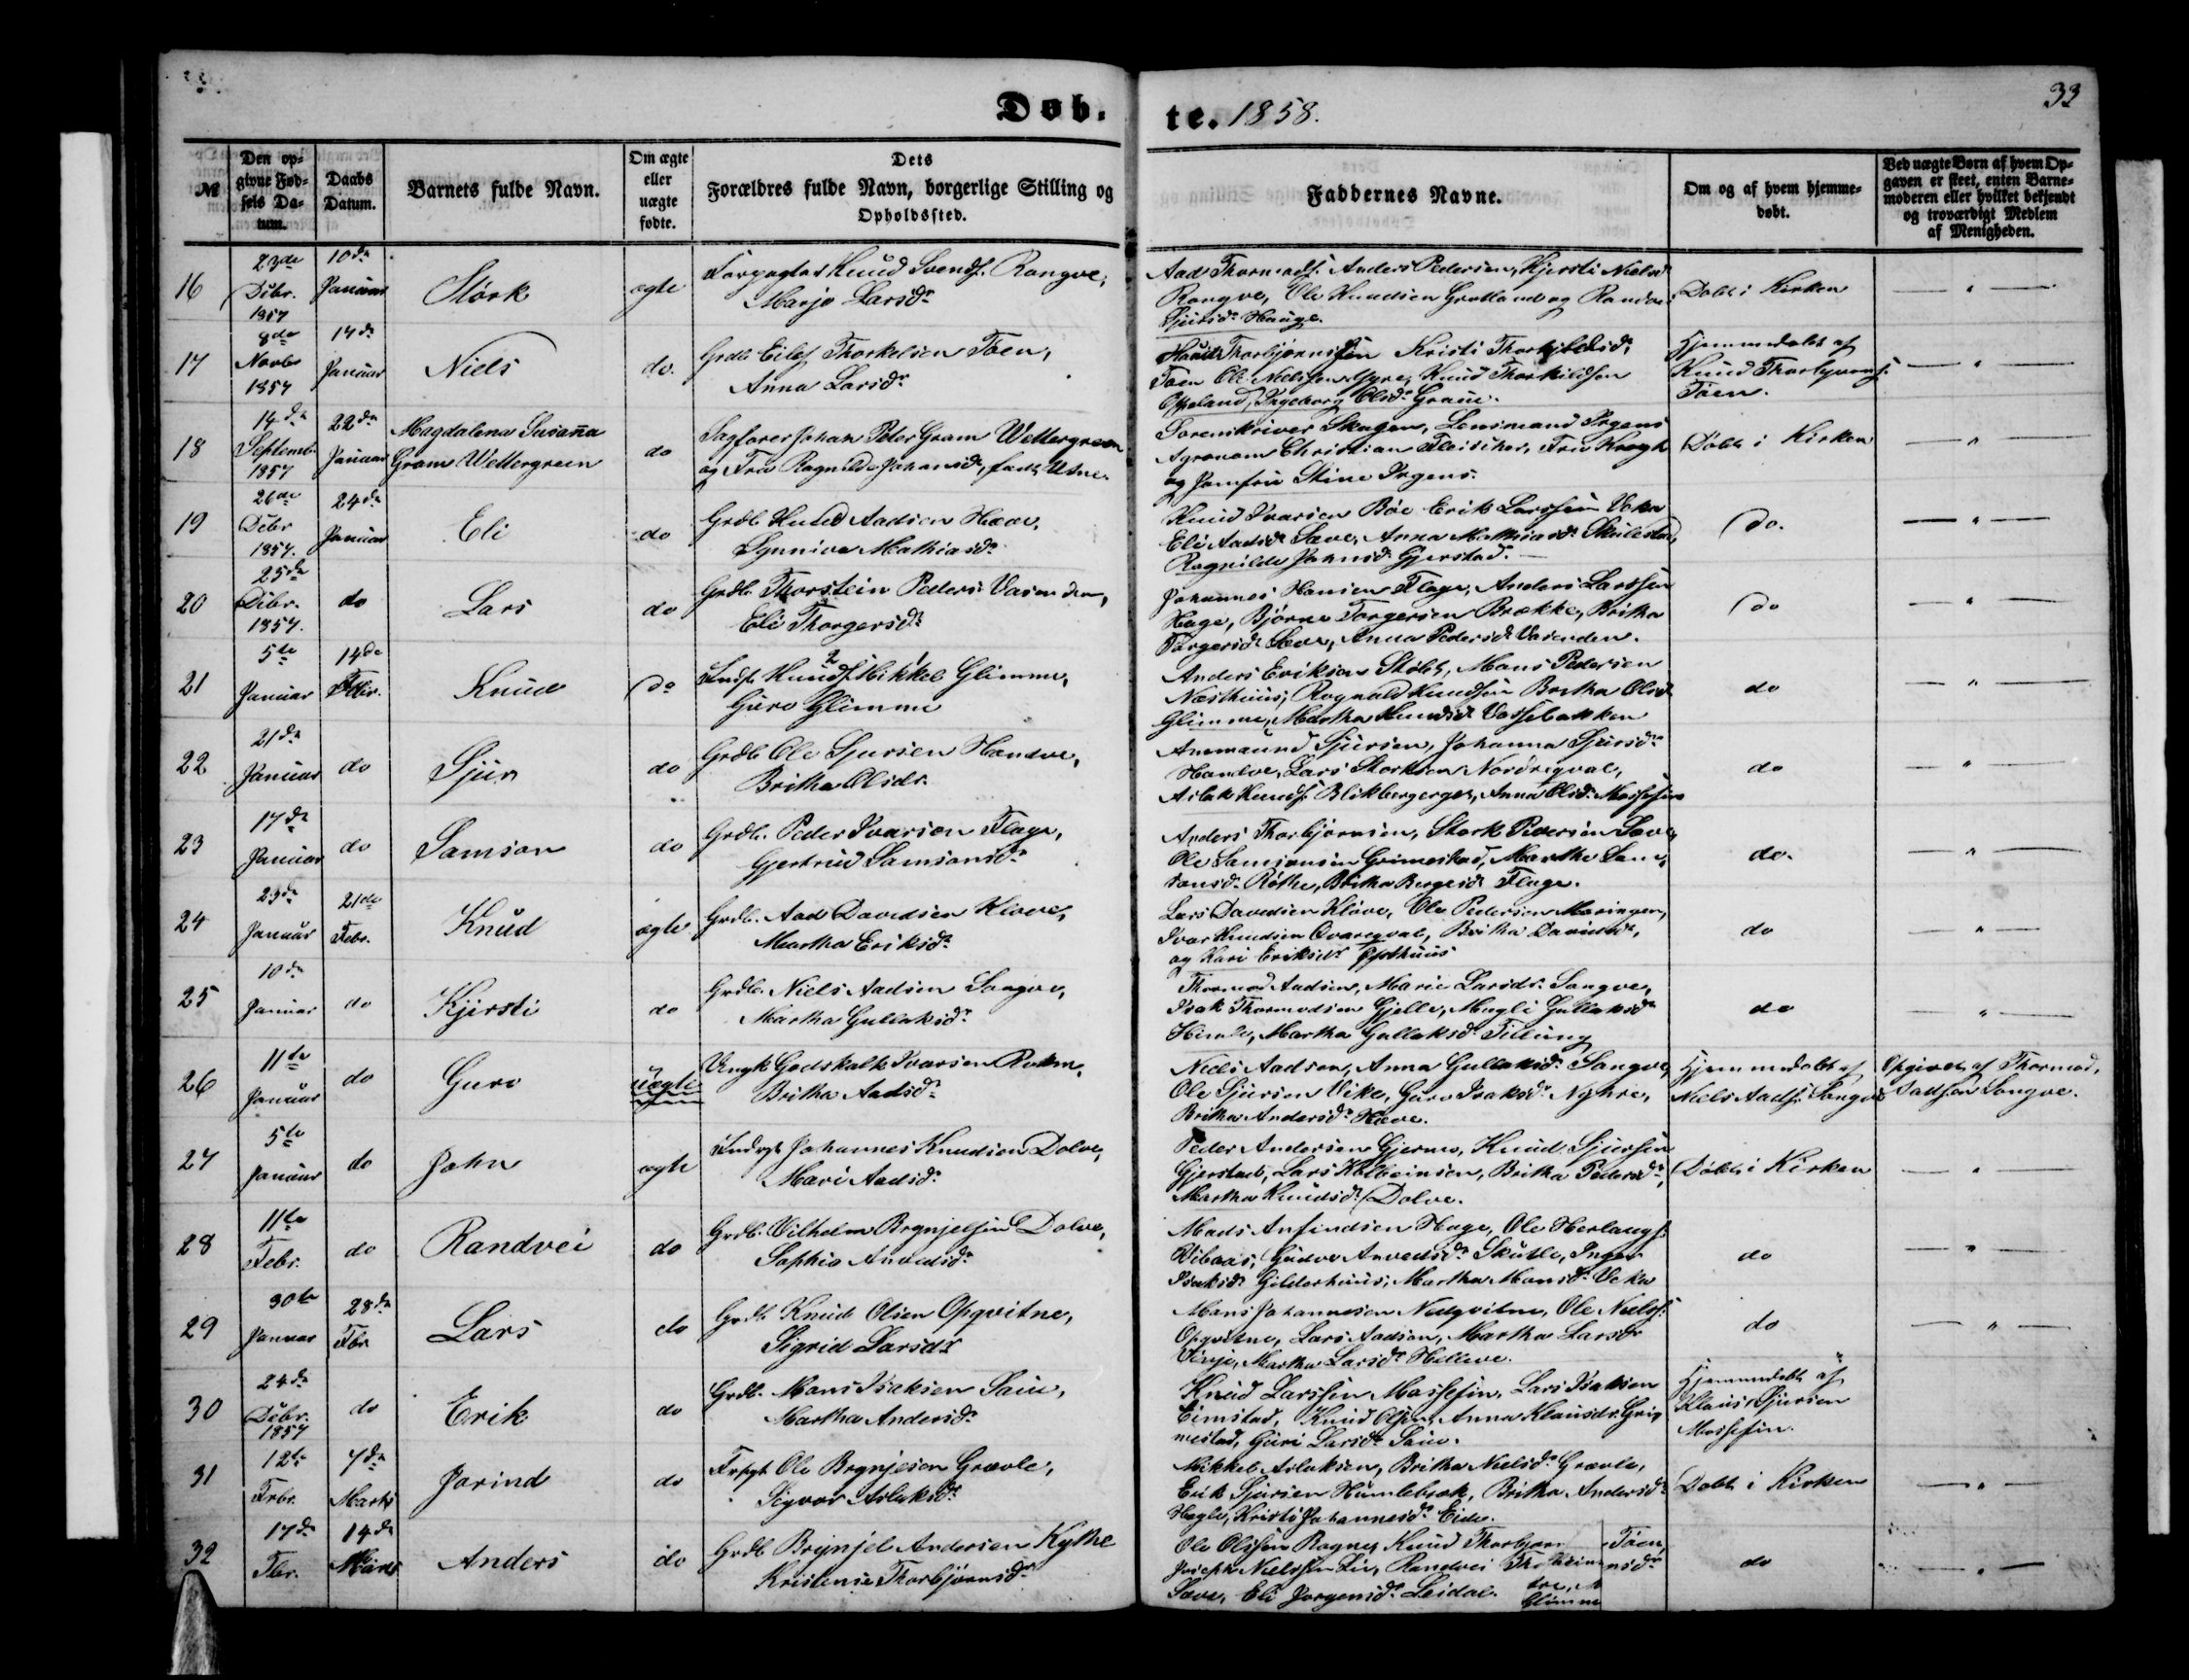 33
Døb-
te. 1858.
№
Den op-
givne Fød-
sels Da-
tum.
Daabs
Datum.
Barnets fulde Navn.
Om ægte
eller
uægte
fødte.
Dets
Forældres fulde Navn, borgerlige Stilling og
Opholdssted.
Faddernes Navne.
Om og af hvem hjemme-
døbt.
Ved uægte Børn af hvem Op-
gaven er skeet, enten Barne-
moderen eller hvilket bekjendt
og troværdigt Medlem
af Menigheden.
16
23de
Dcbr.
1857
10de
Januar
Størk
ægte
Forpagter Knud Svends. Rongve,
Marjo Larsdr
Aad Thormods. Anders Pedersen, Kjersti Nielsdr
Rongve, Ole Knudsen Grotland og Randvei
Sjursdr Hauge.
Døbt i Kirken
17
8de
Novbr
1857
17de
Januar
Niels
do.
Grdb. Eilef Thorkelsen Tøen,
Anna Larsdr
Knud Thorbjørnssen Kristi Thorkildsdr
Tøen Ole Nielssen Myre, Knud Thorkildsen
Opeland, Ingeborg Olsdr Graue.
Hjemmedøbt af
Knud Thorbjørns.
Tøen.
18
14de
Septemb.
1857
22de
Januar
Magdalena Susanna
Gram Wettergreen
do
Sagfører Johan Peter Gram Wettergreen
og Fru Ragnilde Johansdr, født Utne.
Sorenskriver Skagen, Lensmand Irgens
Agronom Christian Fleischer, Fru Krogh
og Jomfru Stine Irgens.
Døbt i Kirken
19
26de
Dcbr
1857.
24de
Januar
Eli
do
Grdb. Knud Aadsen Hæve,
Synnive Mathiasdr
Knud Ivarsen Bøe Erik Larssen Veka
Eli Aadsdr Sæve, Anna Mathiasdr Skulestad,
Ragnilde Johnsdr Gjerstad.
do.
20
25de
Dcbr.
1857.
do
Lars
do
Grdb. Thorstein Peders. Vasenden,
Eli Thorgersdr
Johannes Hansen Flage, Anders Larssen
Hage, Bjørne Torgersen Brække, Britha
Torgersdr Sæve, Anna Pedersdr Vasenden.
do
21
5te
Januar
14de
Febr.
Knud
do
Inds. Knuds. Mikkel Glimme,
Guro Glimme
Anders Eriksen Støle, Mons Pedersen
Næsthuus, Ragnald Knudsen Britha Olsdr
Glimme, Martha Knudsdr Vossebakken
do
22
21de
Januar
do
Sjur
do
Grdb. Ole Sjursen Handve,
Britha Olsdr.
Ammund Sjursen, Johanna Sjursdr
Handve, Lars Storksen Nordreqval,
Aslak Knuds. Blikberget, Anna Olsdr Mossefin
do
23
17de
Januar
do
Samson
do
Grdb. Peder Ivarson Flage,
Gjertrud Samsonsdr
Anders Thorbjørnsen, Størk Pedersen Sæve,
Ole Samsonsen Grimestad, Martha Sam-
sonsdr Røthe, Britha Børgesdr Flage.
do.
24
23de
Januar
21de
Febr.
Knud
ægte
Grdb. Aad Davidsen Kløve,
Martha Eriksdr
Lars Davidsen Kløve, Ole Pedersen Moringen,
Ivar Knudsen Qvareqval, Britha Davidsdr,
og Kari Eriksdr
do
25
10de
Januar
do
Kjersti
do
Grdb. Niels Aadsen Songve,
Martha Gullaksdr
Thormod Aadsen, Marie Larsdr. Songve,
Isak Thormodsen Gjelle, Magli Gullaksdr
Himle, Martha Gullaksdr Tillung
do
26
11te
Januar
do
Guro
uægte
Ungk. Godskalk Ivarsen Rokne,
Britha Aadsdr
Niels Aadson, Anna Gullaksdr Songve,
Ole Sjursen Vike, Guro Isaksdr Nyhre,
Britha Andersdr Hæve.
Hjemmedøbt af
Niels Aads. Songve
Opgivet af Thormod
Aadsen Songve.
27
5te
Januar
do
John
ægte
Indrgt. Johannes Knudson Dolve,
Mari Aadsdr
Peder Andersen Gjerme, Knud Sjurssen
Gjerstad, Lars Kolbeinsen, Britha Pedersdr,
Martha Knudsdr Dolve.
Døbt i Kirken
28
11te
Febr.
do
Randvei
do
Grdb. Vilhelm Brynjelsen Dolve,
Sophia Anvedsdr
Mads Anfindsen Hage, Ole Herlaugs.
Gudve Anvedsdr Skutle, Inger
Isaksdr Gilderhuus, Martha Monsdr Veka
do
29
30te
Januar
28de
Fbr
Lars
do
Grdb. Knud Olsen Opqvitne,
Sigrid Larsdr
Mons Johannesen Nedqvitne, Ole Niels.
Opqvitne, Lars Aadsen, Martha Larsdr
Vinje, Martha Larsdr Helleve.
do
30
24de
Dcbr.
1857
do
Erik
do
Grdb. Mons Isaksen Saue,
Martha Andersdr
Knud Larssen Mossefin, Lars Isaksen
Eimstad, Knud Olsen, Anna Klausdr. Gri-
mestad, Guri Larsdr Saue.
Hjemmedøbt af
Klaus Sjursen
Mossefin.
31
12te
Febr.
7de
Marts
Jorind
do
Forpgt. Ole Brynjeson Grøvle,
Sigvor Aslaksdr
Mikkel Aslaksen, Britha Nielsdr Grøvle,
Erik Sjursen Humlebræk, Britha Andersdr
Hægle, Kristi Johannesdr Eide.
Døbt i Kirken
32
17de
Fbr.
14de
Marts
Anders
do
Grdb. Brynjel Andersen Kythe
Kristense Thorbjørnsdr
Ole Olssen Rogne, Knud Thorbjørns. Tøen,
Joseph Nielssen Liv, Randvei Thorbjørnsdr
Sæve, Eli Jorgensdr Leidal. Glimme
do